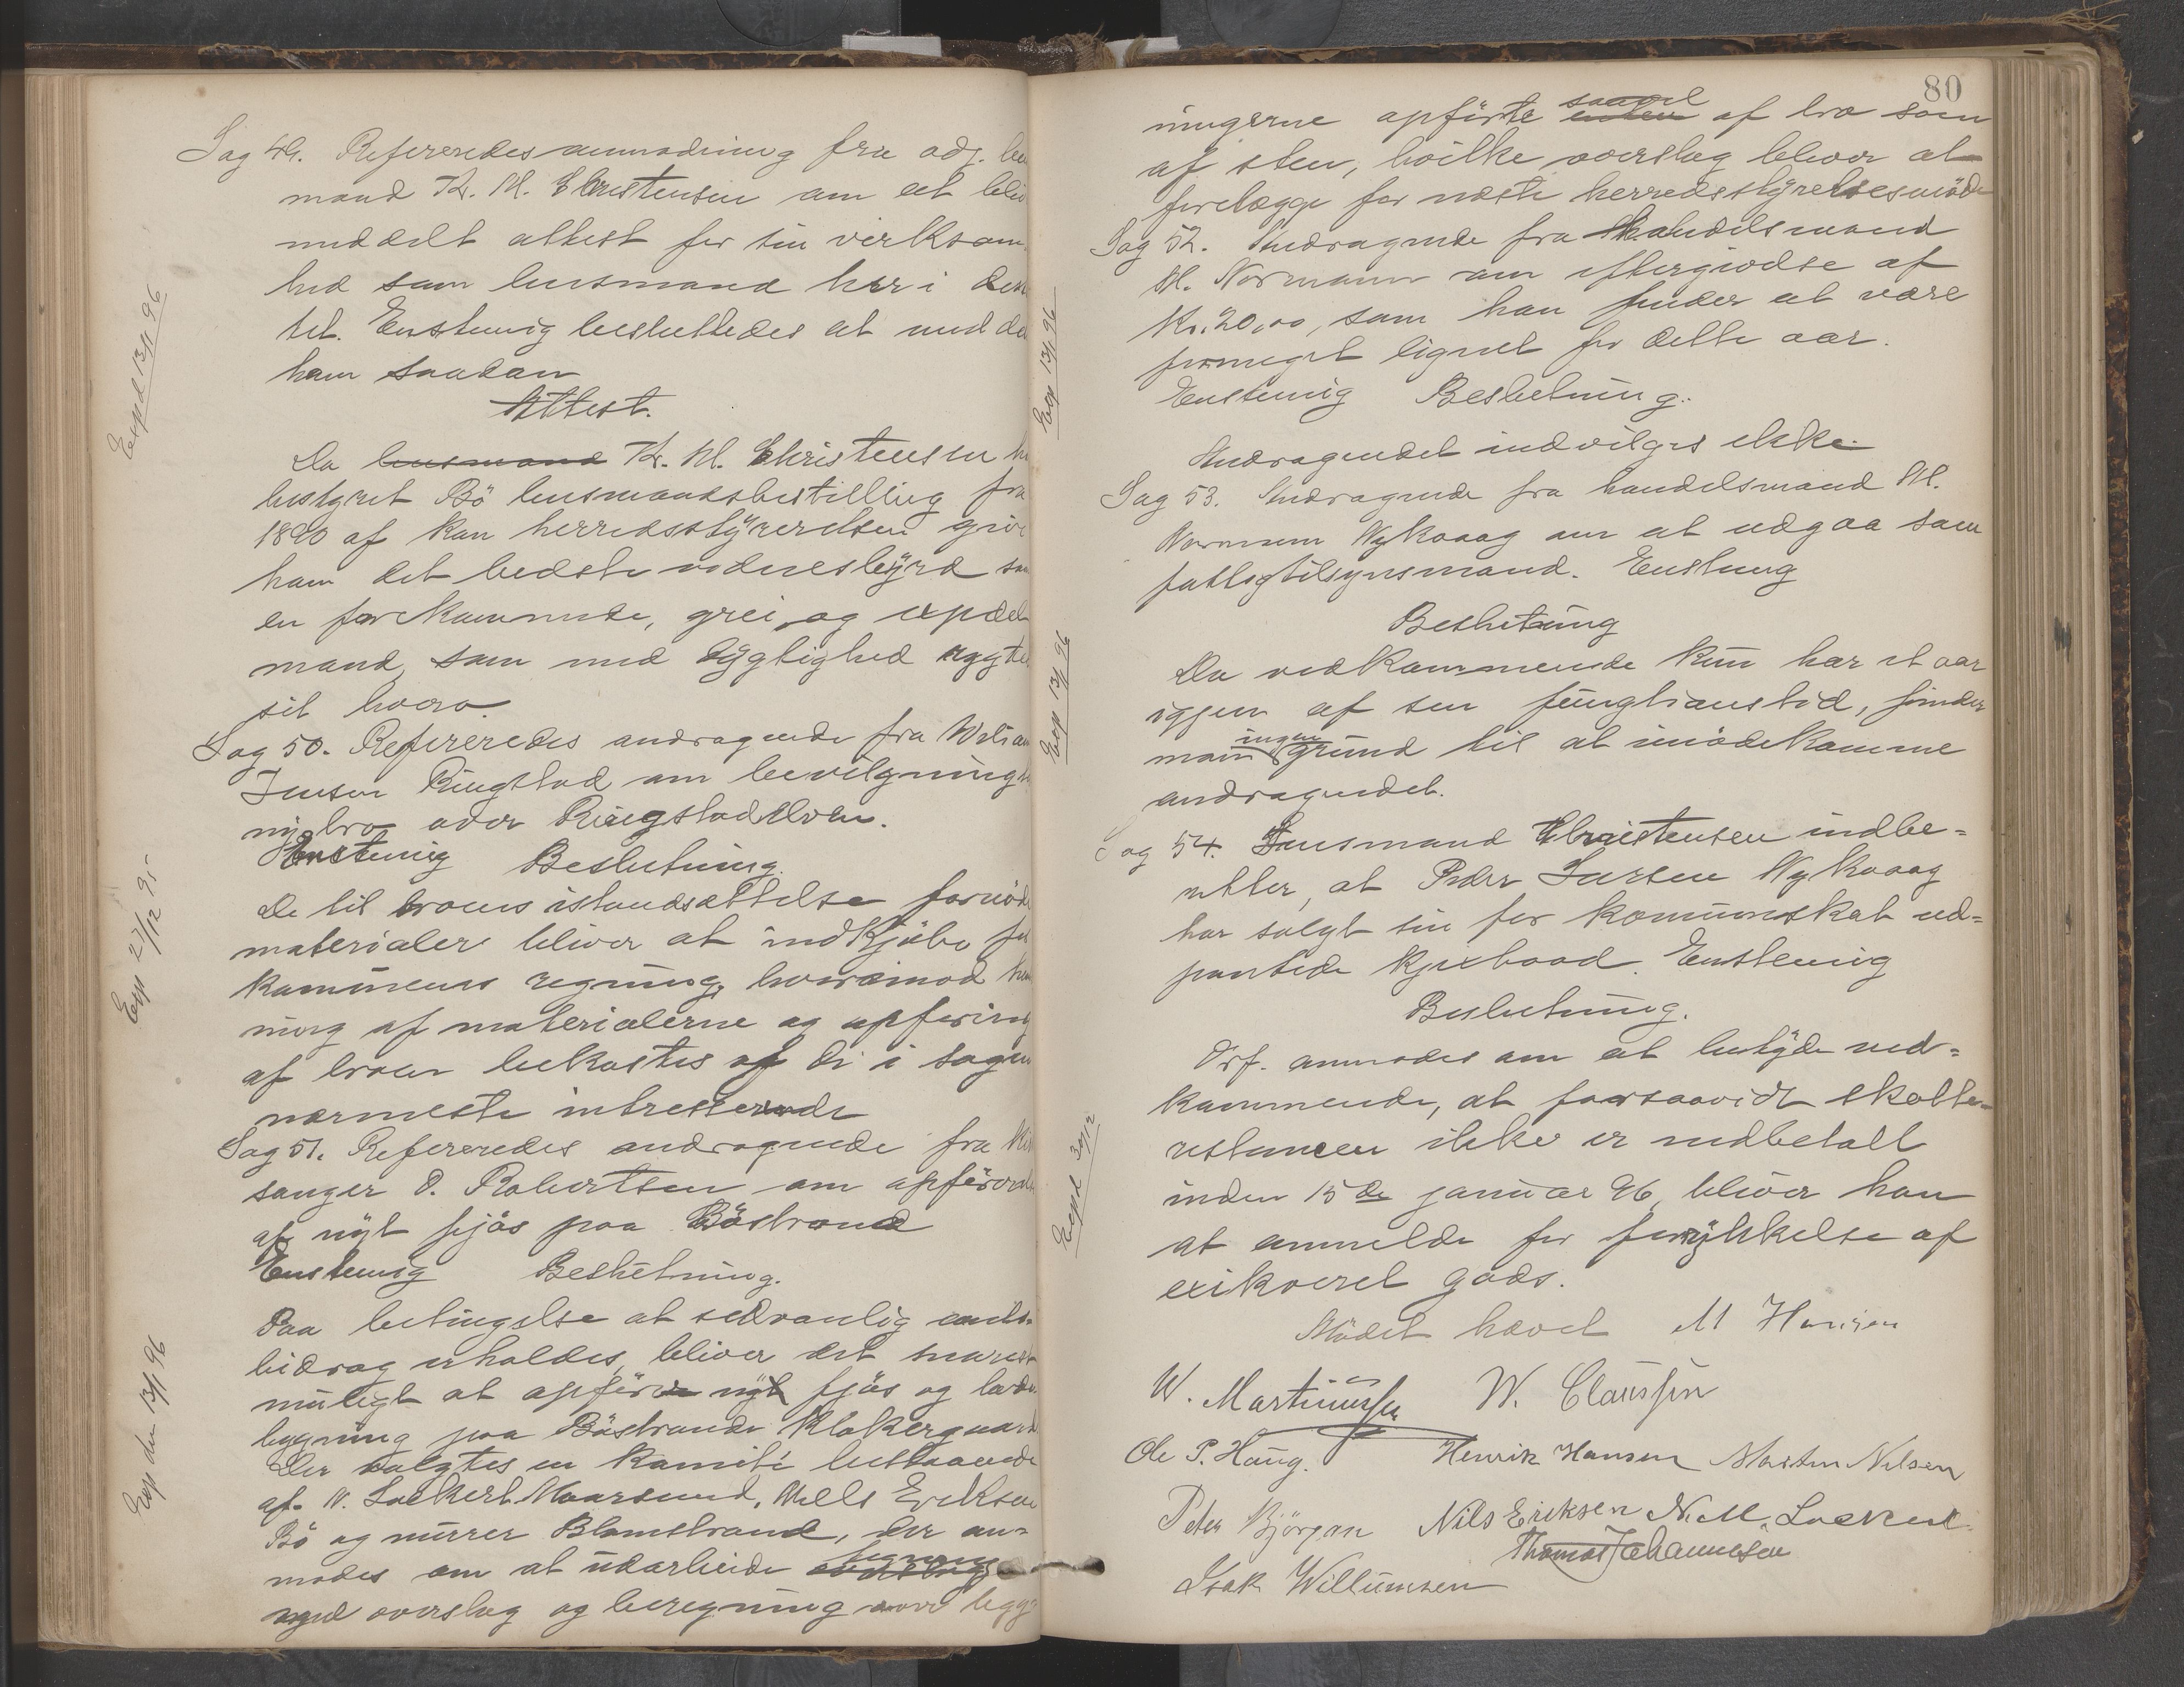 Sag 49. Refereredes anmodning fra adj. len
mand K. M. Christensen om at bliv
meddelt attest for sin virksom
hed som lensmand her i distri
tet. Enstemig besluttedes at meddel
ham saadan
Attest.
Da lensmand K. M. Christensen ha
bestyret Bö lensmandsbestilling fra
1890 af kan herredsstyrerelsen give
ham det bedste vidnesbyrd som
en forekommende, grei og
mand, som med dygtighed røgter
sit hverv.
Sag 50. Refereredes andragende fra
Jensen Ringstad om bevilgning
ny bro over Ringstadelven.
Enstemig Beslutning.
De til broens istandsættelse fornöd
materialer bliver at indkjöbe for
kommunens regning, hvorimod
ning af materialerne og opföring
af broen bekostes af de i sagen
nærmeste intresserede
Sag 51. Refereredes andragende fra Kirke
sanger O. Robertsen om opförelse
af nyt fjös paa Böstrand
Enstemig Beslutning.
Paa betingelse at sedvanlig amts-
bidrag erholdes, bliver det snarest
muligt at opföre nyt fjös og lade
bygning paa Böstrands klokkergaard
Der valgtes en komité bestaaende
af N. Lockert Maarsund, Nils Eriksen
Bö og murer Blomstrand, der an=
modes om at udarbeide tegning
med overslag og beregning over bygg
Expd 13/1 96
Exp 27/12 95
Exp den 13/1 96
80
ningerne opförte enten saavel af træ som
af sten, hvilke overslag bliver at
forelægge for næste herredsstyrelsesmöde
Sag 52. Andragende fra handelsmand
M. Normann om eftergivelse af
Kr. 20,00, som han finder at være
formeget lignet for dette aar.
Enstemig Beslutning.
Andragendet indvilges ikke.
Sag 53. Andragende fra handelsmand M.
Normann Nykvaag om at udgaa som
fattigtilsynsmand. Enstemig
Beslutning
Da vedkommende kun har et aar
igjen af sin fungtionstid, finder
man ingen grund til at imödekomme
andragendet.
Sag 54. Lensmand Christensen indbe=
retter, at Peder Larsen Nykvaag
har solgt sin for komuneskat ud=
pantede kjexbaad. Enstemig
Beslutning.
Orf. anmodes om at betyde ved=
kommende, at forsaavidt skatte-
restancen ikke er indbetalt
inden 15de januar 96, bliver han
at anmelde for forrykkelse af
exikveret gods.
Mödet hævet M Hansen
W. Martinussen W. Claussen
Ole P. Haug. Henrik Hansen Morten Nilsen
Peter Björgan Nils Eriksen N. M. Lockert
Thomas Johannesen
Isak Willumsen
Exp 13/1 96
Exp 13/1 96
Expd 30/12